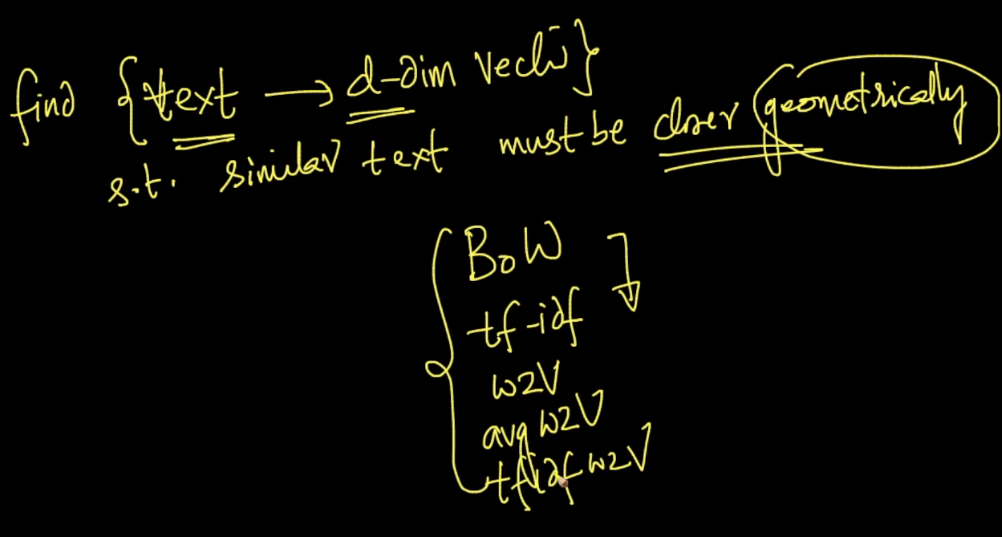 find {text → d-dim vector}
s.t. similar text must be closer geometrically
BoW
tf-idf
w2V
avg w2V
tfidf w2V